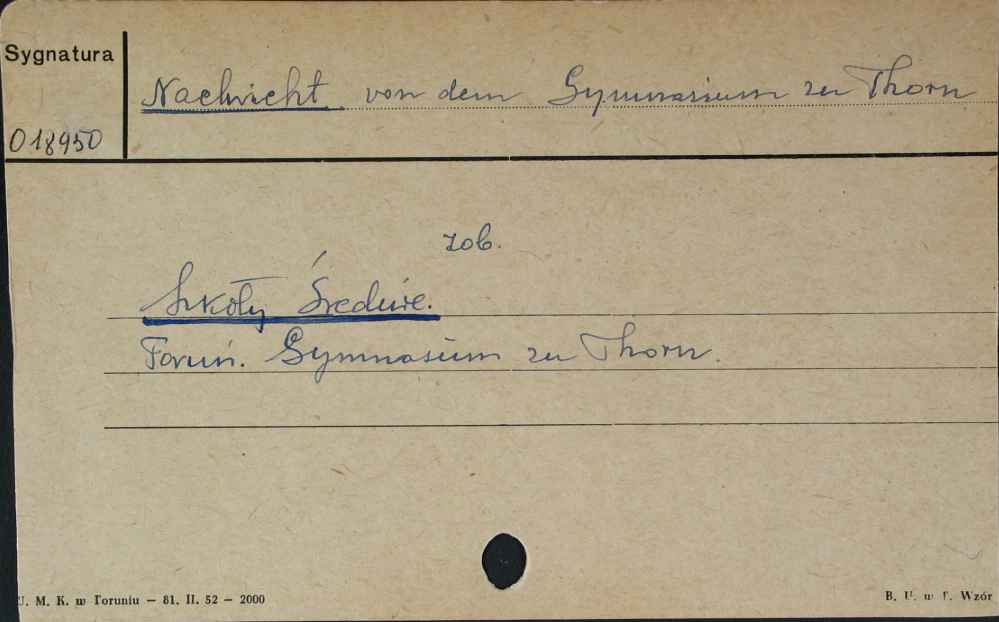 Sygnatura
Nachricht von dem Gymnasium zu Thorn
018950
zob.
Szkoły Średnie.
Toruń. Gymnasium zu Thorn.
U. M. K. w Toruniu — 81. II. 52 — 2000
B. U. w T. Wzór